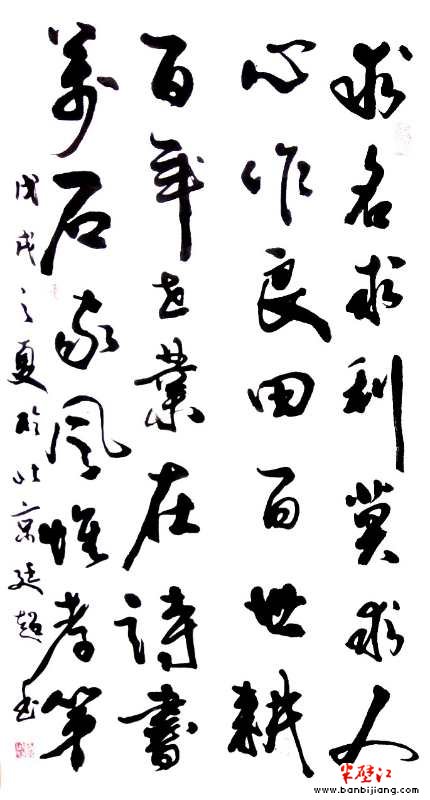 求名求利莫求人
心作良田百世耕
百年世業在詩書
萬石家風惟孝第
戊戌之夏於北京廷超书
半壁江
www.banbijiang.com